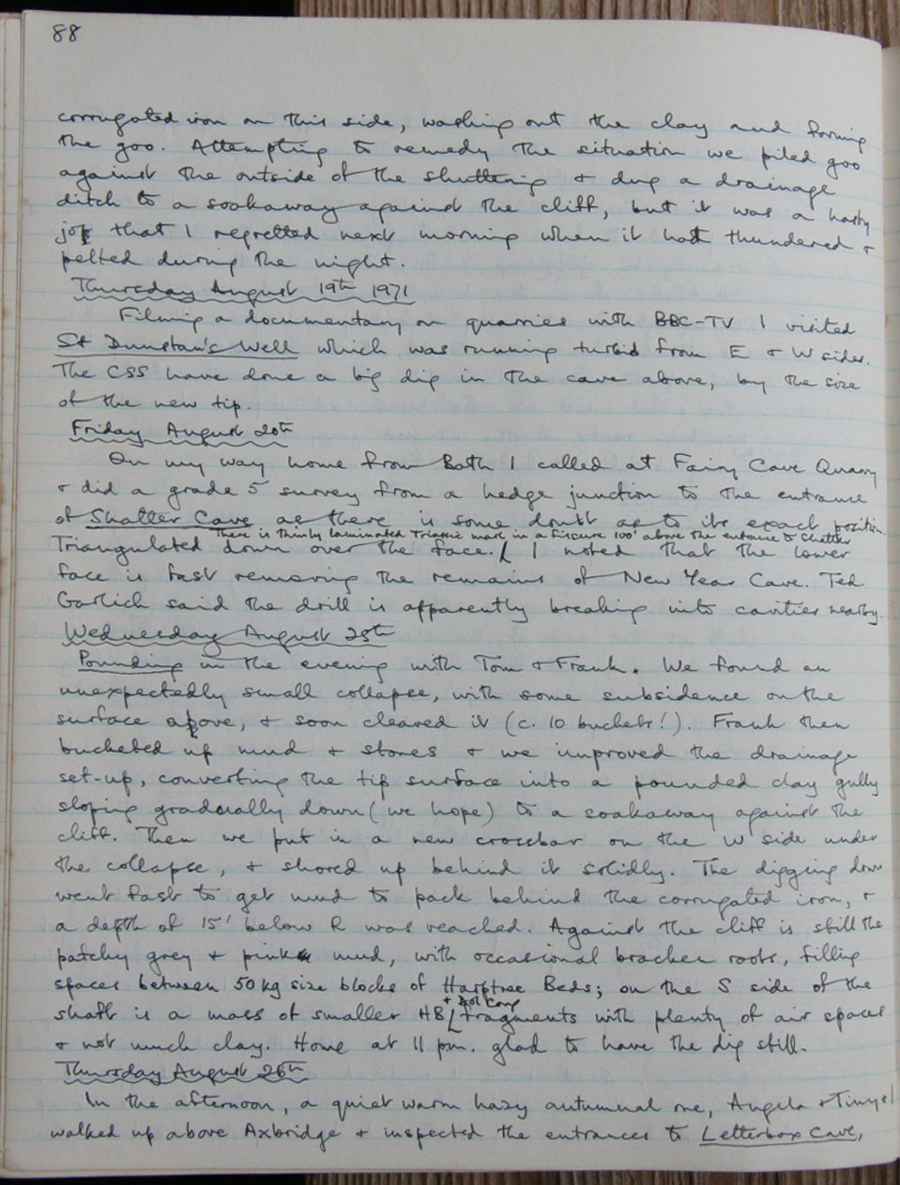 88
corrugated iron on this side, washing out the clay and forming
the goo. Attempting to remedy the situation we piled goo
against the outside of the shuttering & dug a drainage
ditch to a soakaway against the cliff, but it was a hasty
job that I regretted next morning when it had thundered &
pelted during the night.
Thursday August 19th 1971
Filming a documentary on quarries with BBC-TV I visited
St Dunstan's Well which was running turbid from E & W sides.
The CSS have done a big dig in the cave above, by the size
of the new tip.
Friday August 20th
On my way home from Bath I called at Fairy Cave Quarry
& did a grade 5 survey from a hedge junction to the entrance
of Shatter Cave as there is some doubt as to its exact position.
There is thinly laminated Triassic marl in a fissure 100' above the entrance to Shatter
Triangulated down over the face. I noted that the lower
face is fast removing the remains of New Year Cave. Ted
Garlich said the drill is apparently breaking into cavities nearby.
Wednesday August 25th
Pounding in the evening with Tom & Frank. We found an
unexpectedly small collapse, with some subsidence on the
surface above, & soon cleared it (c. 10 buckets!). Frank then
bucketed up mud & stones & we improved the drainage
set-up, converting the tip surface into a pounded clay gully
sloping gradually down (we hope) to a soakaway against the
cliff. Then we put in a new crossbar on the W side under
the collapse, & shored up behind it solidly. The digging down
went fast to get mud to pack behind the corrugated iron, &
a depth of 15' below R was reached. Against the cliff is still the
patchy grey & pink mud, with occasional bracken roots, filling
spaces between 50 kg size blocks of Harptree Beds; on the S side of the
+ Dol Cong
shaft is a mass of smaller HB fragments with plenty of air spaces
& not much clay. Home at 11 pm. glad to have the dig still.
Thursday August 26th
In the afternoon, a quiet warm hazy autumnal one, Angela & I
walked up above Axbridge & inspected the entrances to Letterbox Cave,